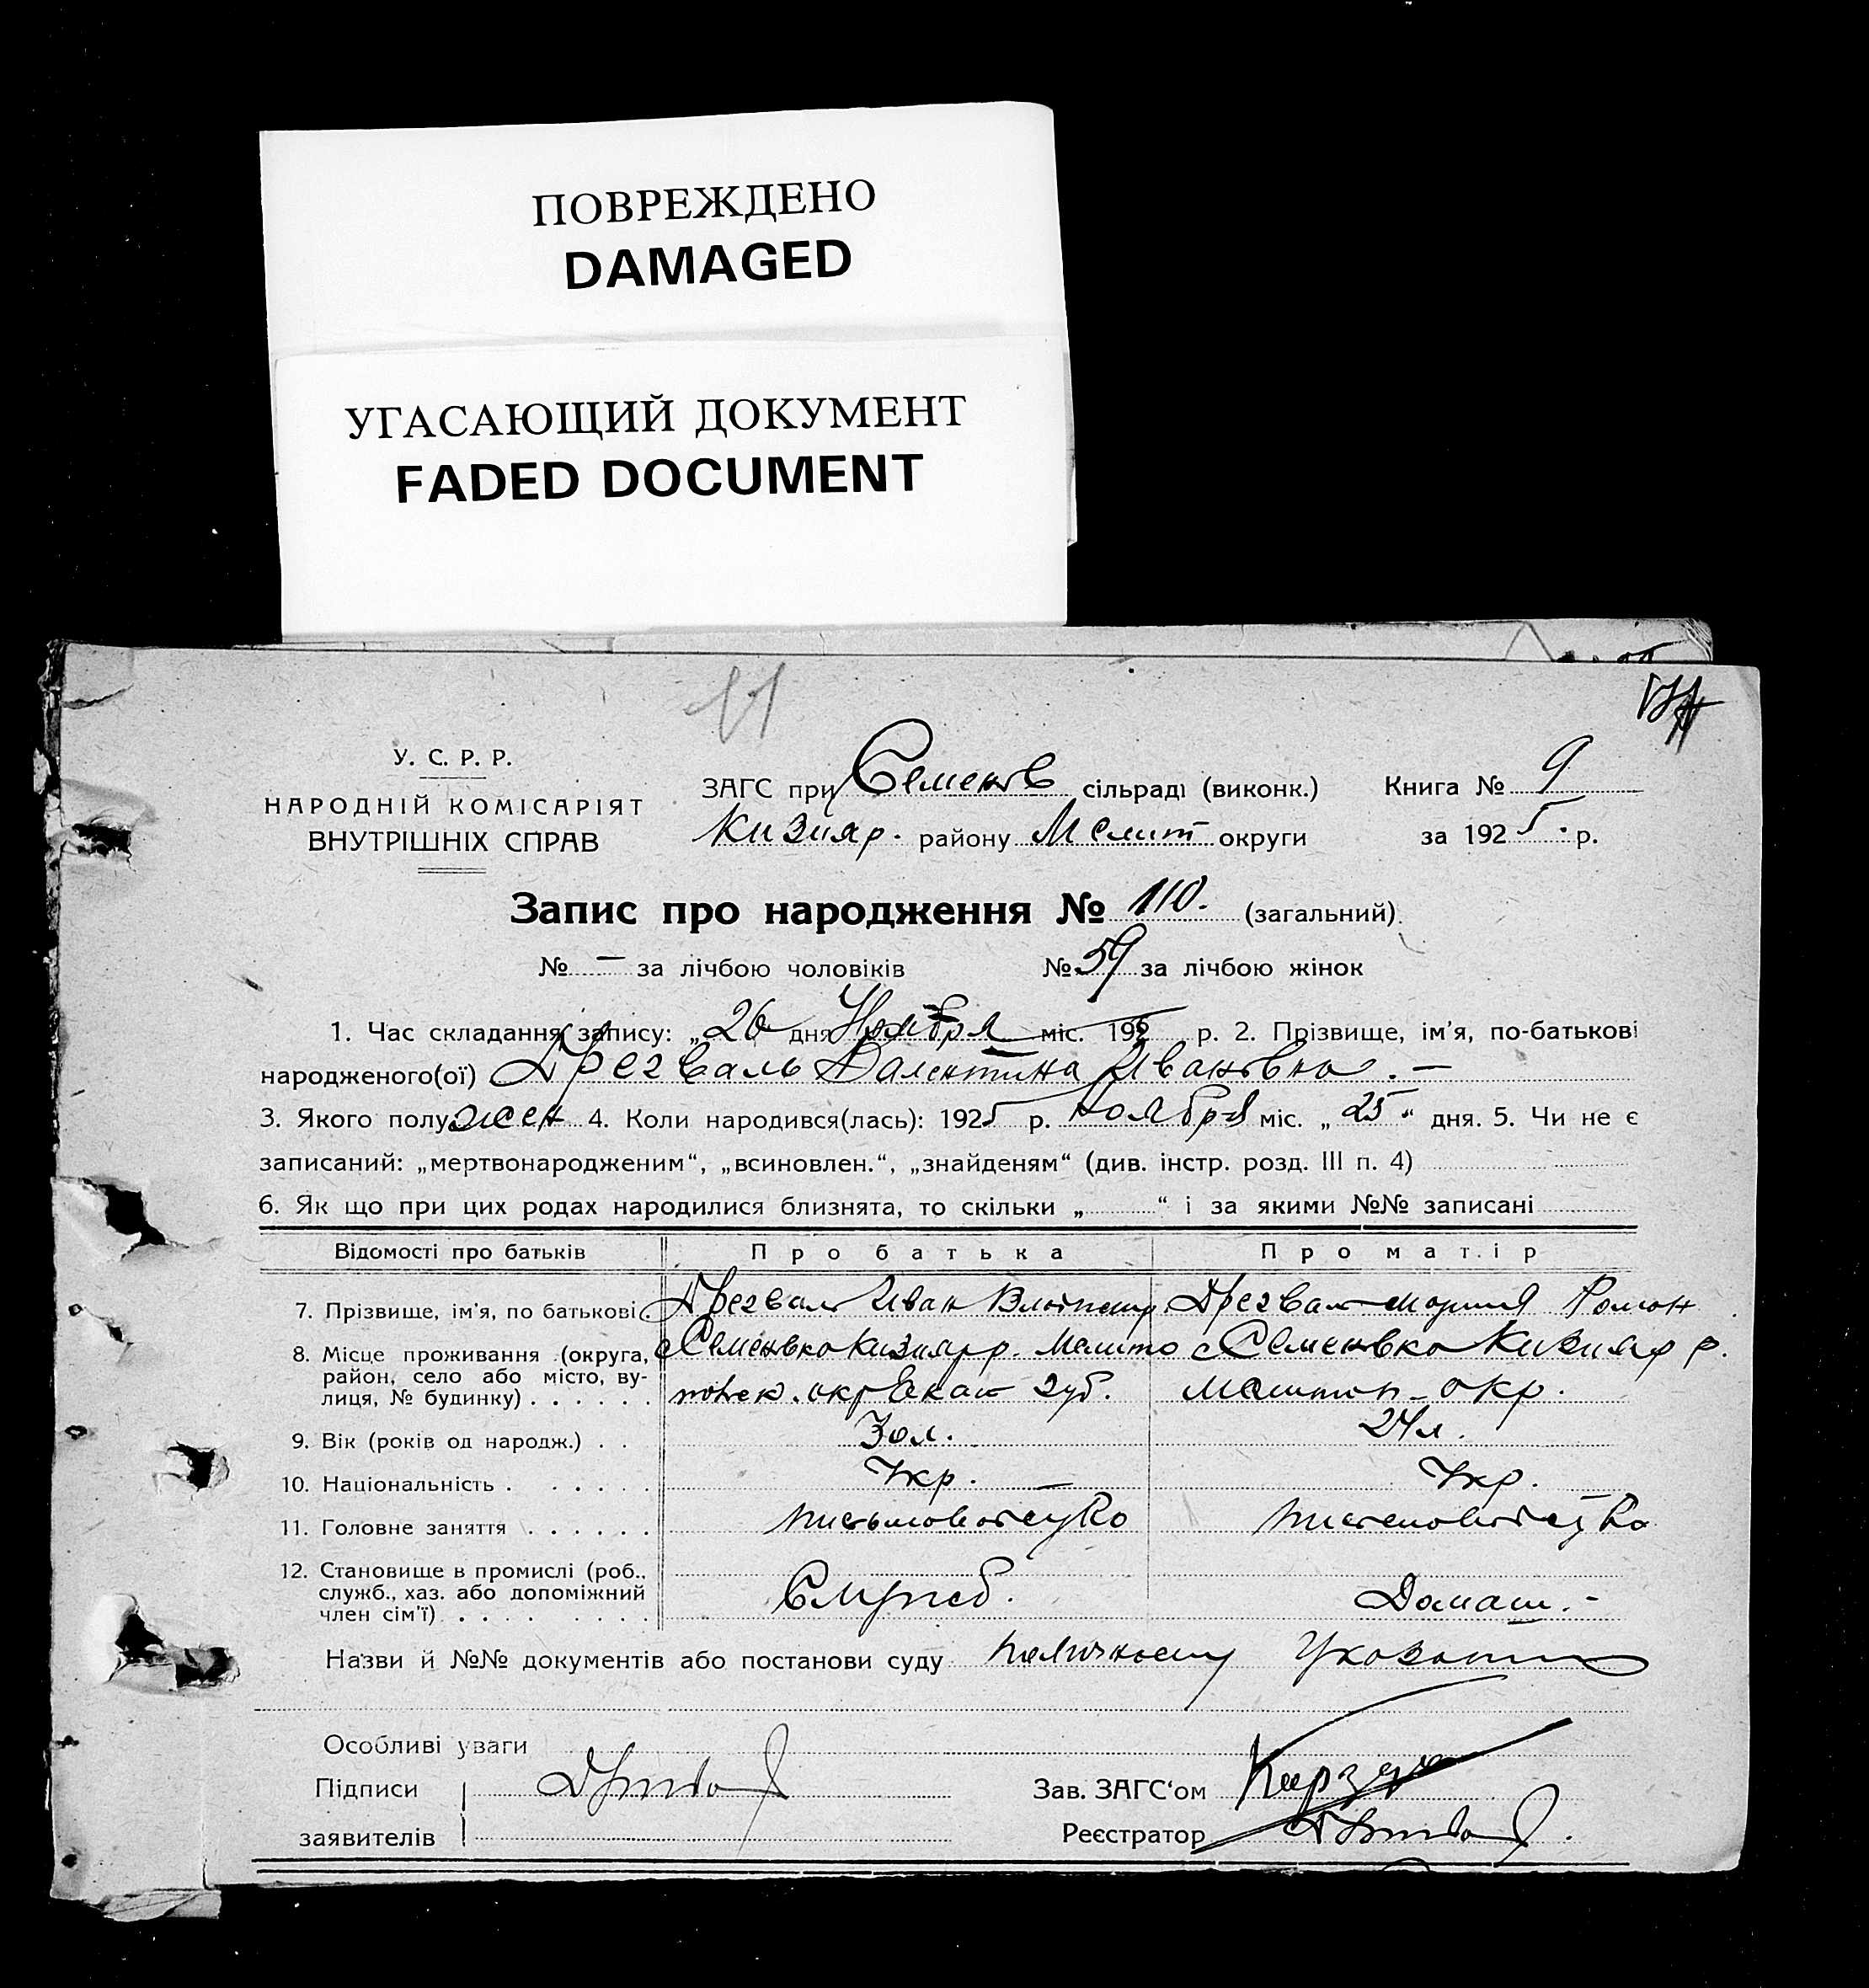 ПОВРЕЖДЕНО
DAMAGED
УГАСАЮЩИЙ ДОКУМЕНТ
FADED DOCUMENT
11
У. С. Р. Р.
НАРОДНІЙ КОМІСАРІЯТ
ВНУТРІШНІХ СПРАВ
ЗАГС при Семенов сільраді (виконк.)
Кизияр. району Мелит округи
Книга № 9
за 1925 р.
Запис про народження № 110. (загальний).
№ — за лічбою чоловіків № 59 за лічбою жінок
1. Час складання запису: „26 дня Ноября міс. 1925 р. 2. Прізвище, ім'я, по-батькові
народженого(ої) Дрезваль Валентина Ивановна. —
3. Якого полу жен 4. Коли народився(лась): 1925 р. ноября міс. „25“ дня. 5. Чи не є
записаний: „мертвонародженим“, „всиновлен.“, „знайденям“ (див. інстр. розд. III п. 4)
6. Як що при цих родах народилися близнята, то скільки „ “ і за якими №№ записані
Відомості про батьків Про батька Про матір
7. Прізвище, ім'я, по батькові. Дрезваль Иван Дрезваль Мария Роман
8. Місце проживання (округа, район, село або місто, вулиця, № будинку) . . . . . . с Семеновка Кизияр р. Мелито польск. окр Екат губ. с Семеновка Кизияр р. Мелитоп. окр.
9. Вік (років од народж.) . . 30 л. 24 л.
10. Національність . . . . . . Укр. Укр.
11. Головне заняття . . . . . . письмоводство письмоводство
12. Становище в промислі (роб., служб., хаз. або допоміжний член сім'ї) . . . . . . . . Служб. Домаш. -
Назви й №№ документів або постанови суду по личному
Особливі уваги
Підписи
заявителів
Зав. ЗАГС'ом
Реєстратор